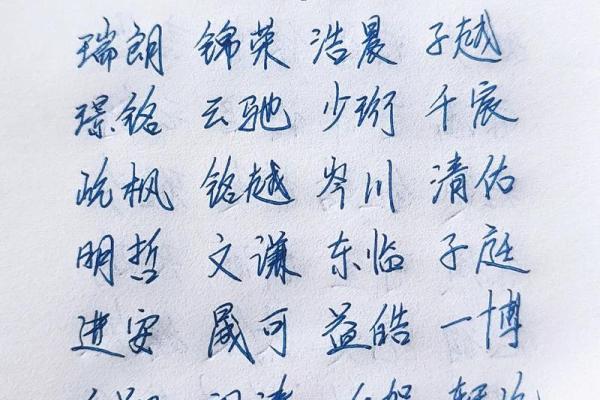 瑞朗 锦荣 浩晨 子越
璟铭 云驰 少珩 千宸
屹枫 铭越 岑川 清佑
明哲 文谦 东临 子庭
进安 晟可 益皓 一博